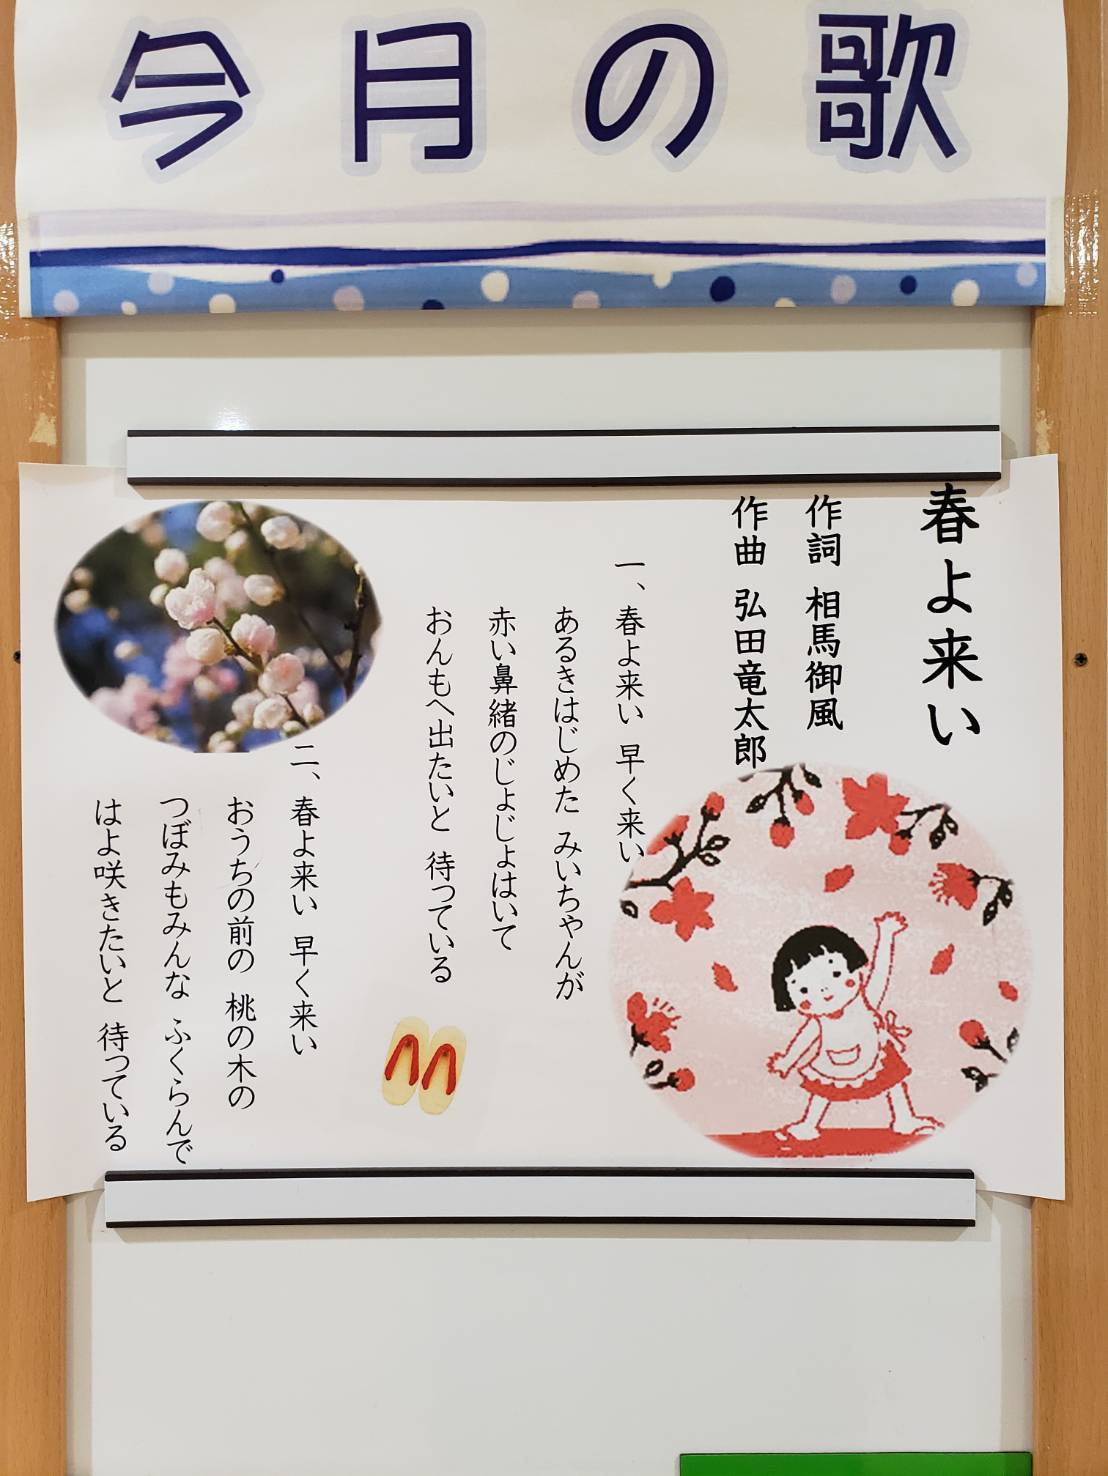 今月の歌
春よ来い
作詞 相馬御風
作曲 弘田竜太郎
一、春よ来い 早く来い
あるきはじめた みいちゃんが
赤い鼻緒のじょじょはいて
おんもへ出たいと 待っている
二、春よ来い 早く来い
おうちの前の 桃の木の
つぼみもみんな ふくらんで
はよ咲きたいと 待っている